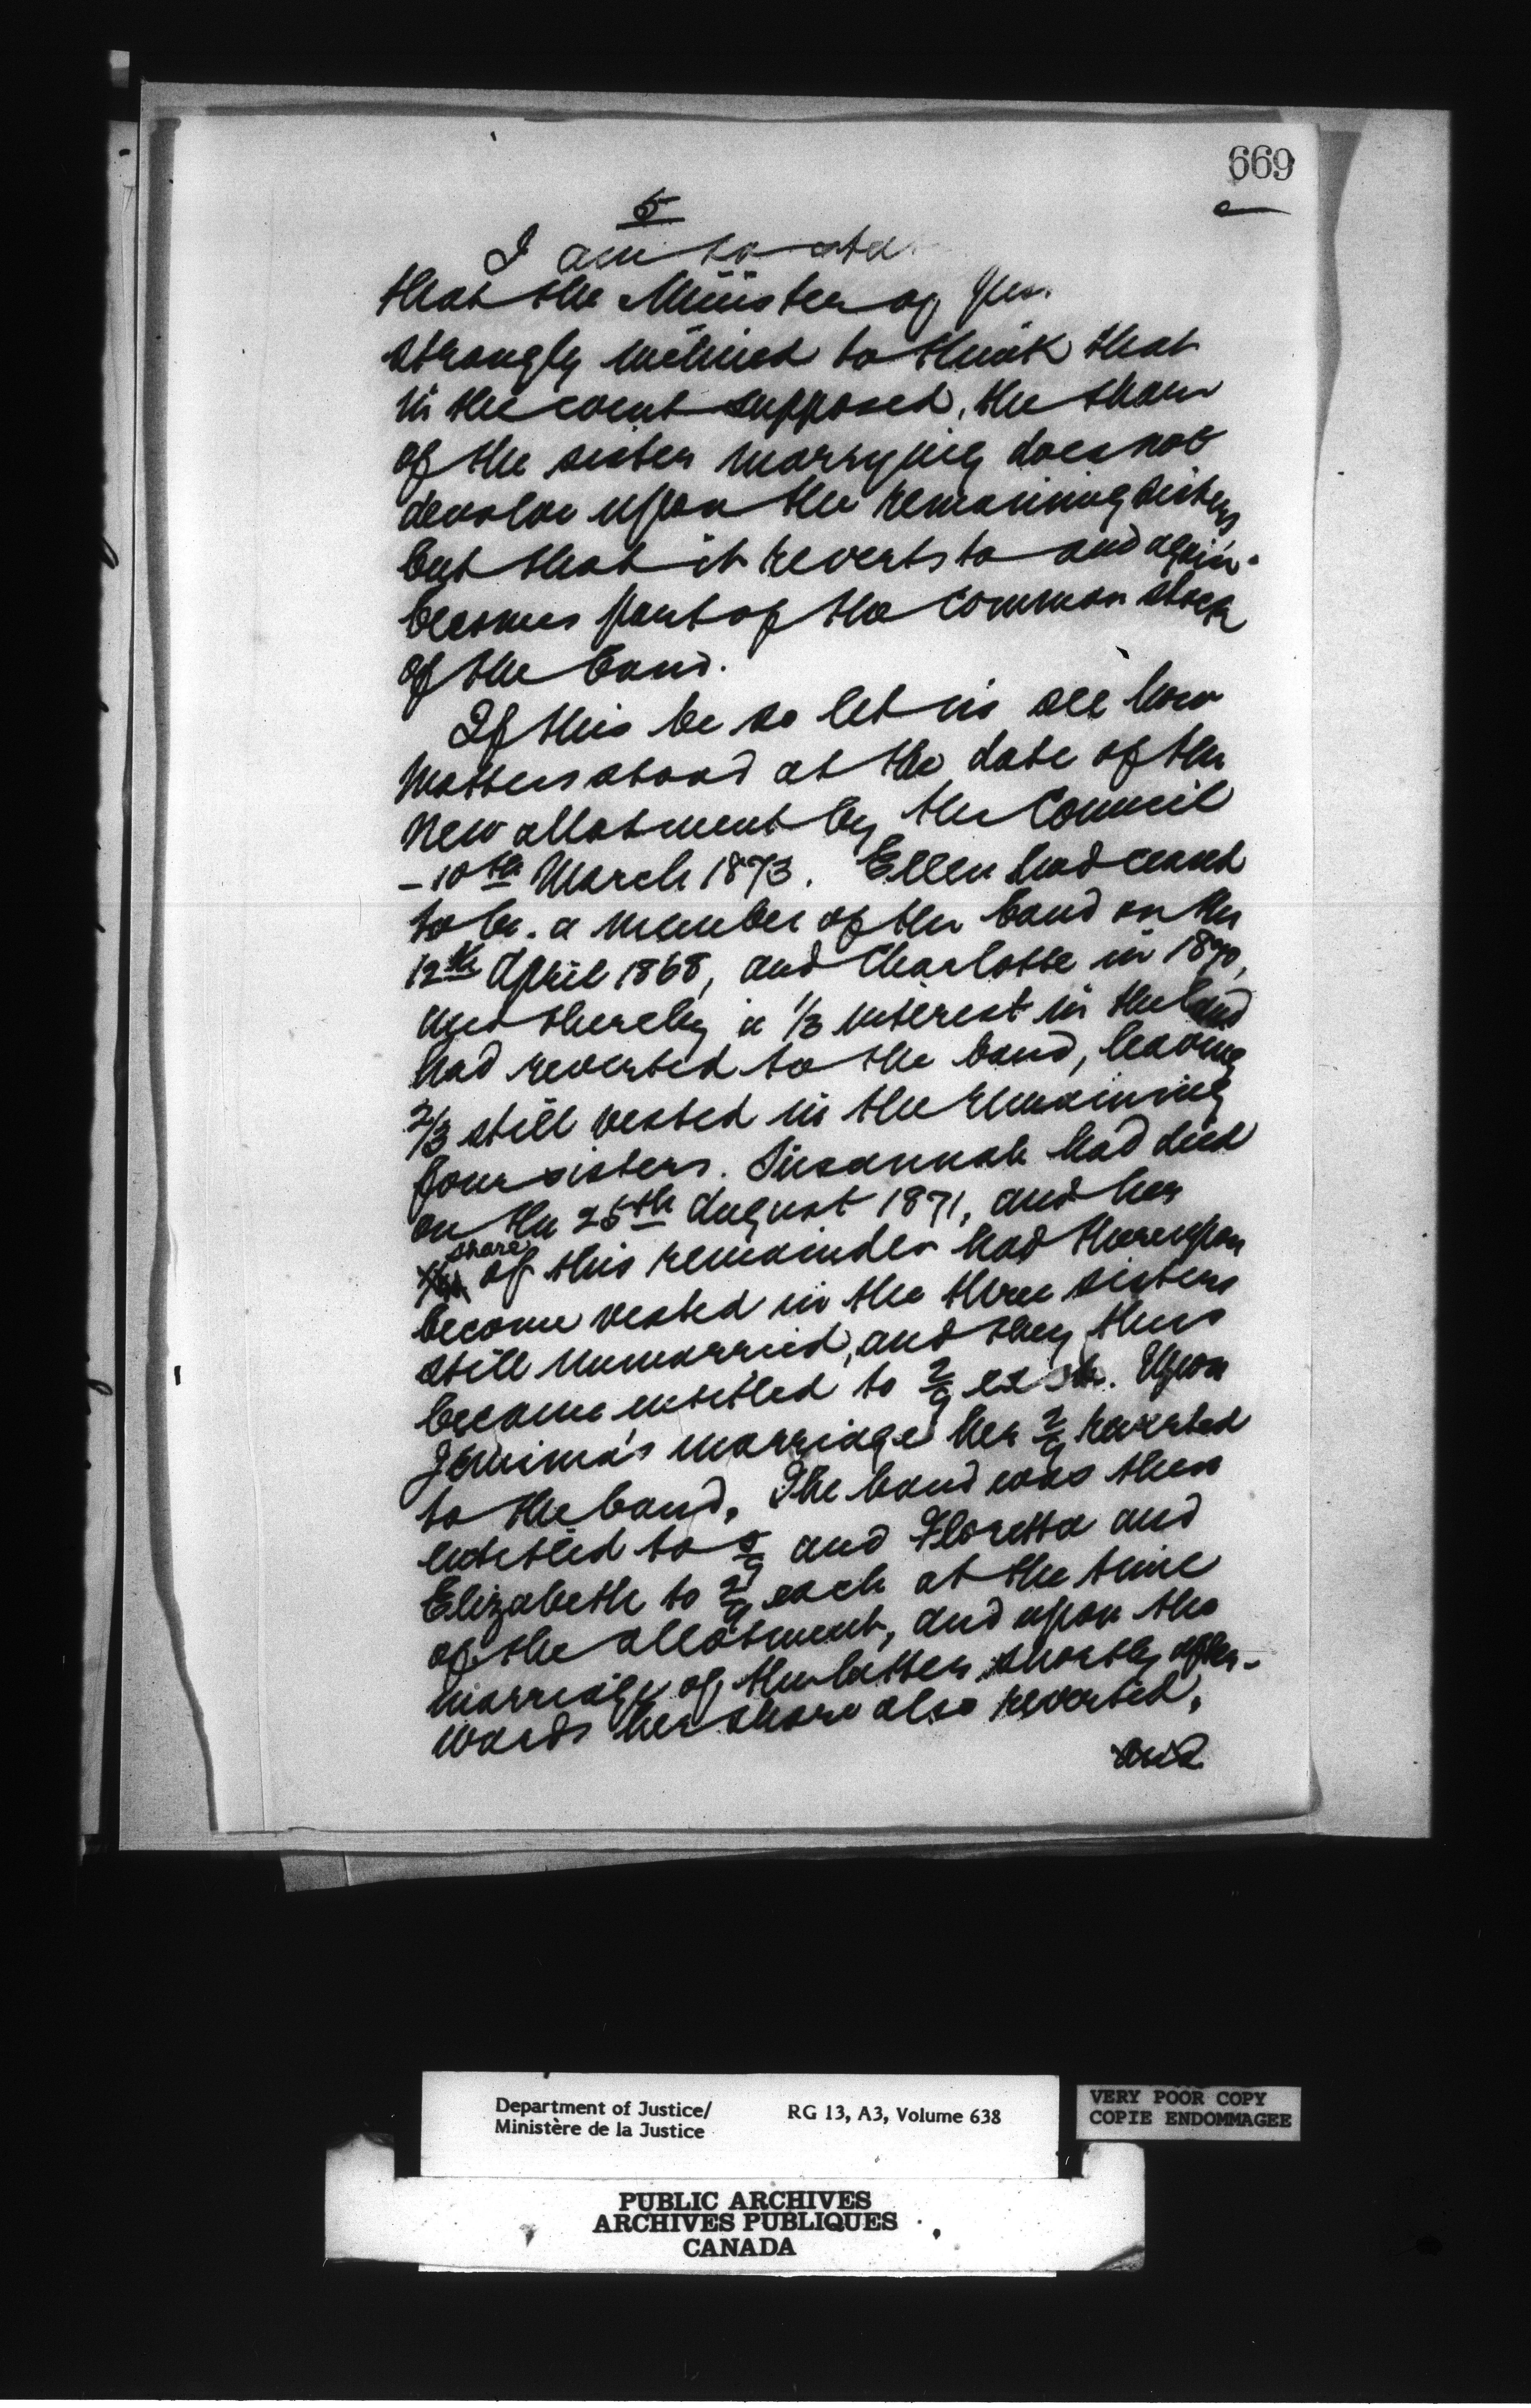 669
5
I am to state
that the Minister of Jus.
strongly inclined to think that
in the event supposed, the share
of the sister marrying does not
devolve upon the remaining sisters
but that it reverts to and again
becomes part of the common stock
of the band.
If this be so let us see how
matters stood at the date of the
new allotment by the Council
- 10th March 1873. Ellen had ceased
to be a member of the band on the
12th April 1868, and Charlotte in 1870,
and thereby a 1/3 interest in the land
had reverted to the band, leaving
2/3 still vested in the remaining
four sisters. Susannah had died
on the 25th August 1871, and her
share
of this remainder had thereupon
become vested in the three sisters
still unmarried, and they thus
became entitled to 2/9 each. Upon
Jemima's marriage her 2/9 reverted
to the band. The band was then
entitled to 5/9 and Floretta and
Elizabeth to 2/9 each at the time
of the allotment, and upon the
marriage of the latter shortly after-
wards her share also reverted,
and
Department of Justice/
Ministère de la Justice
RG 13, A3, Volume 638
VERY POOR COPY
COPIE ENDOMMAGEE
PUBLIC ARCHIVES
ARCHIVES PUBLIQUES
CANADA